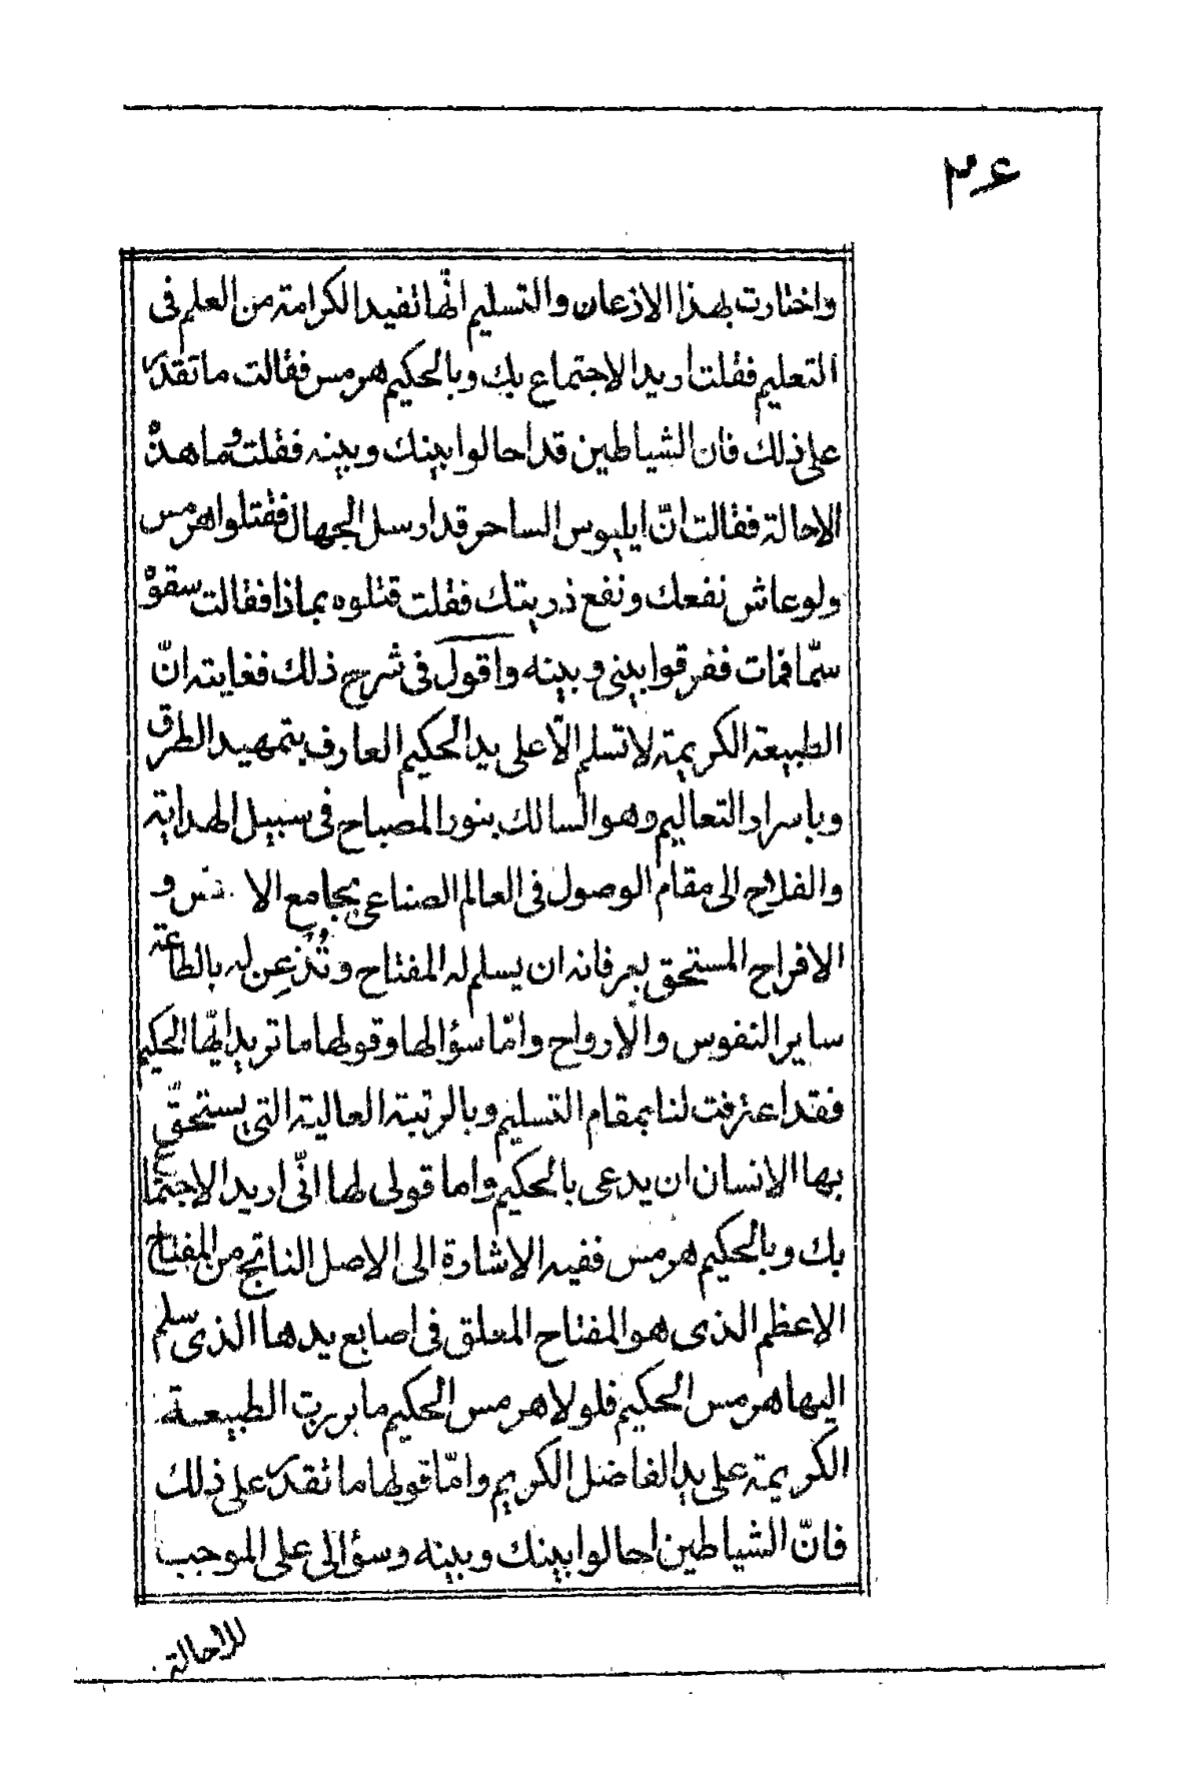 ٣٤
واختارت بهذا الاذعان والتسليم انّها تفيد الكرامة من العلم فى
التعليم فقلت اريد الاجتماع بك وبالحكيم هرمس فقالت ما تقدر
على ذلك فان الشياطين قد احالوا بينك وبينه فقلت وما هذه
الاحالة فقالت انّ ايلبوس الساحر قد ارسل الجهال فقتلوا هرمس
ولو عاش نفعك ونفع ذريتك فقلت قتلوه بماذا فقالت سقوه
سمّا فمات ففرقوا بينى وبينه واقول فى شرح ذلك فغايته انّ
الطبيعة الكريمة لا تسلم الّا على يد الحكيم العارف بتمهيد الطرق
وباسرار التعاليم وهو السالك بنور المصباح فى سبيل الهداية
والفلاح الى مقام الوصول فى العالم الصناعى بجامع الا نس و
الافراح المستحق بعرفانه ان يسلم له المفتاح وتُذعِن له بالطاعة
ساير النفوس والارواح وامّا سؤالها وقولها ما تريد ايّها الحكيم
فقد اعترفت لنا بمقام التسليم وبالرتبة العالية التى يستحقّ
بها الانسان ان يدعى بالحكيم واما قولى لها انّى اريد الاجتماع
بك وبالحكيم هرمس ففيه الاشارة الى الاصل الناتج من المفتاح
الاعظم الذى هو المفتاح المعلق فى اصابع يدها الذى سلم
اليها هرمس الحكيم فلولا هرمس الحكيم ما بررت الطبيعة
الكريمة على يد الفاضل الكريم وامّا قولها ما تقدر على ذلك
فانّ الشياطين احالوا بينك وبينه وسؤالى على الموجب
للاحالة